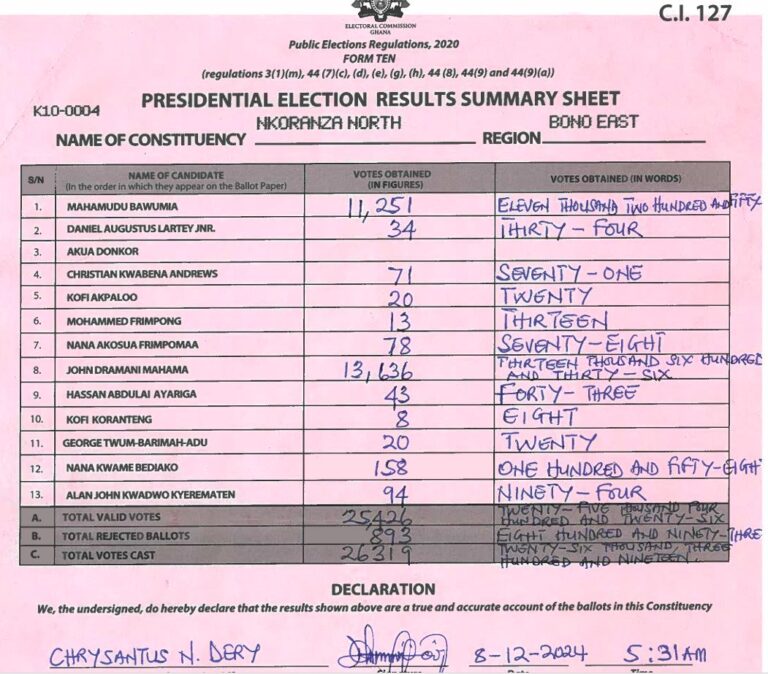 C.I. 127
ELECTORAL COMMISSION
GHANA
Public Elections Regulations, 2020
FORM TEN
(regulations 3(1)(m), 44 (7)(c), (d), (e), (g), (h), 44 (8), 44(9) and 44(9)(a))
K10-0004
PRESIDENTIAL ELECTION RESULTS SUMMARY SHEET
NAME OF CONSTITUENCY NKORANZA NORTH REGION BONO EAST
S/N NAME OF CANDIDATE (In the order in which they appear on the Ballot Paper) VOTES OBTAINED (IN FIGURES) VOTES OBTAINED (IN WORDS)
1. MAHAMUDU BAWUMIA 11,251 ELEVEN THOUSAND TWO HUNDRED AND FIFTY
2. DANIEL AUGUSTUS LARTEY JNR. 34 THIRTY-FOUR
3. AKUA DONKOR
4. CHRISTIAN KWABENA ANDREWS 71 SEVENTY-ONE
5. KOFI AKPALOO 20 TWENTY
6. MOHAMMED FRIMPONG 13 THIRTEEN
7. NANA AKOSUA FRIMPOMAA 78 SEVENTY-EIGHT
8. JOHN DRAMANI MAHAMA 13,636 THIRTEEN THOUSAND SIX HUNDRED AND THIRTY-SIX
9. HASSAN ABDULAI AYARIGA 43 FORTY-THREE
10. KOFI KORANTENG 8 EIGHT
11. GEORGE TWUM-BARIMAH-ADU 20 TWENTY
12. NANA KWAME BEDIAKO 158 ONE HUNDRED AND FIFTY-EIGHT
13. ALAN JOHN KWADWO KYEREMATEN 94 NINETY-FOUR
A. TOTAL VALID VOTES 25,426 TWENTY-FIVE THOUSAND FOUR HUNDRED AND TWENTY-SIX
B. TOTAL REJECTED BALLOTS 893 EIGHT HUNDRED AND NINETY-THRE
C. TOTAL VOTES CAST 26319 TWENTY-SIX THOUSAND, THREE HUNDRED AND NINETEEN.
DECLARATION
We, the undersigned, do hereby declare that the results shown above are a true and accurate account of the ballots in this Constituency
CHRYSANTUS N. DERY 8-12-2024 5:31AM